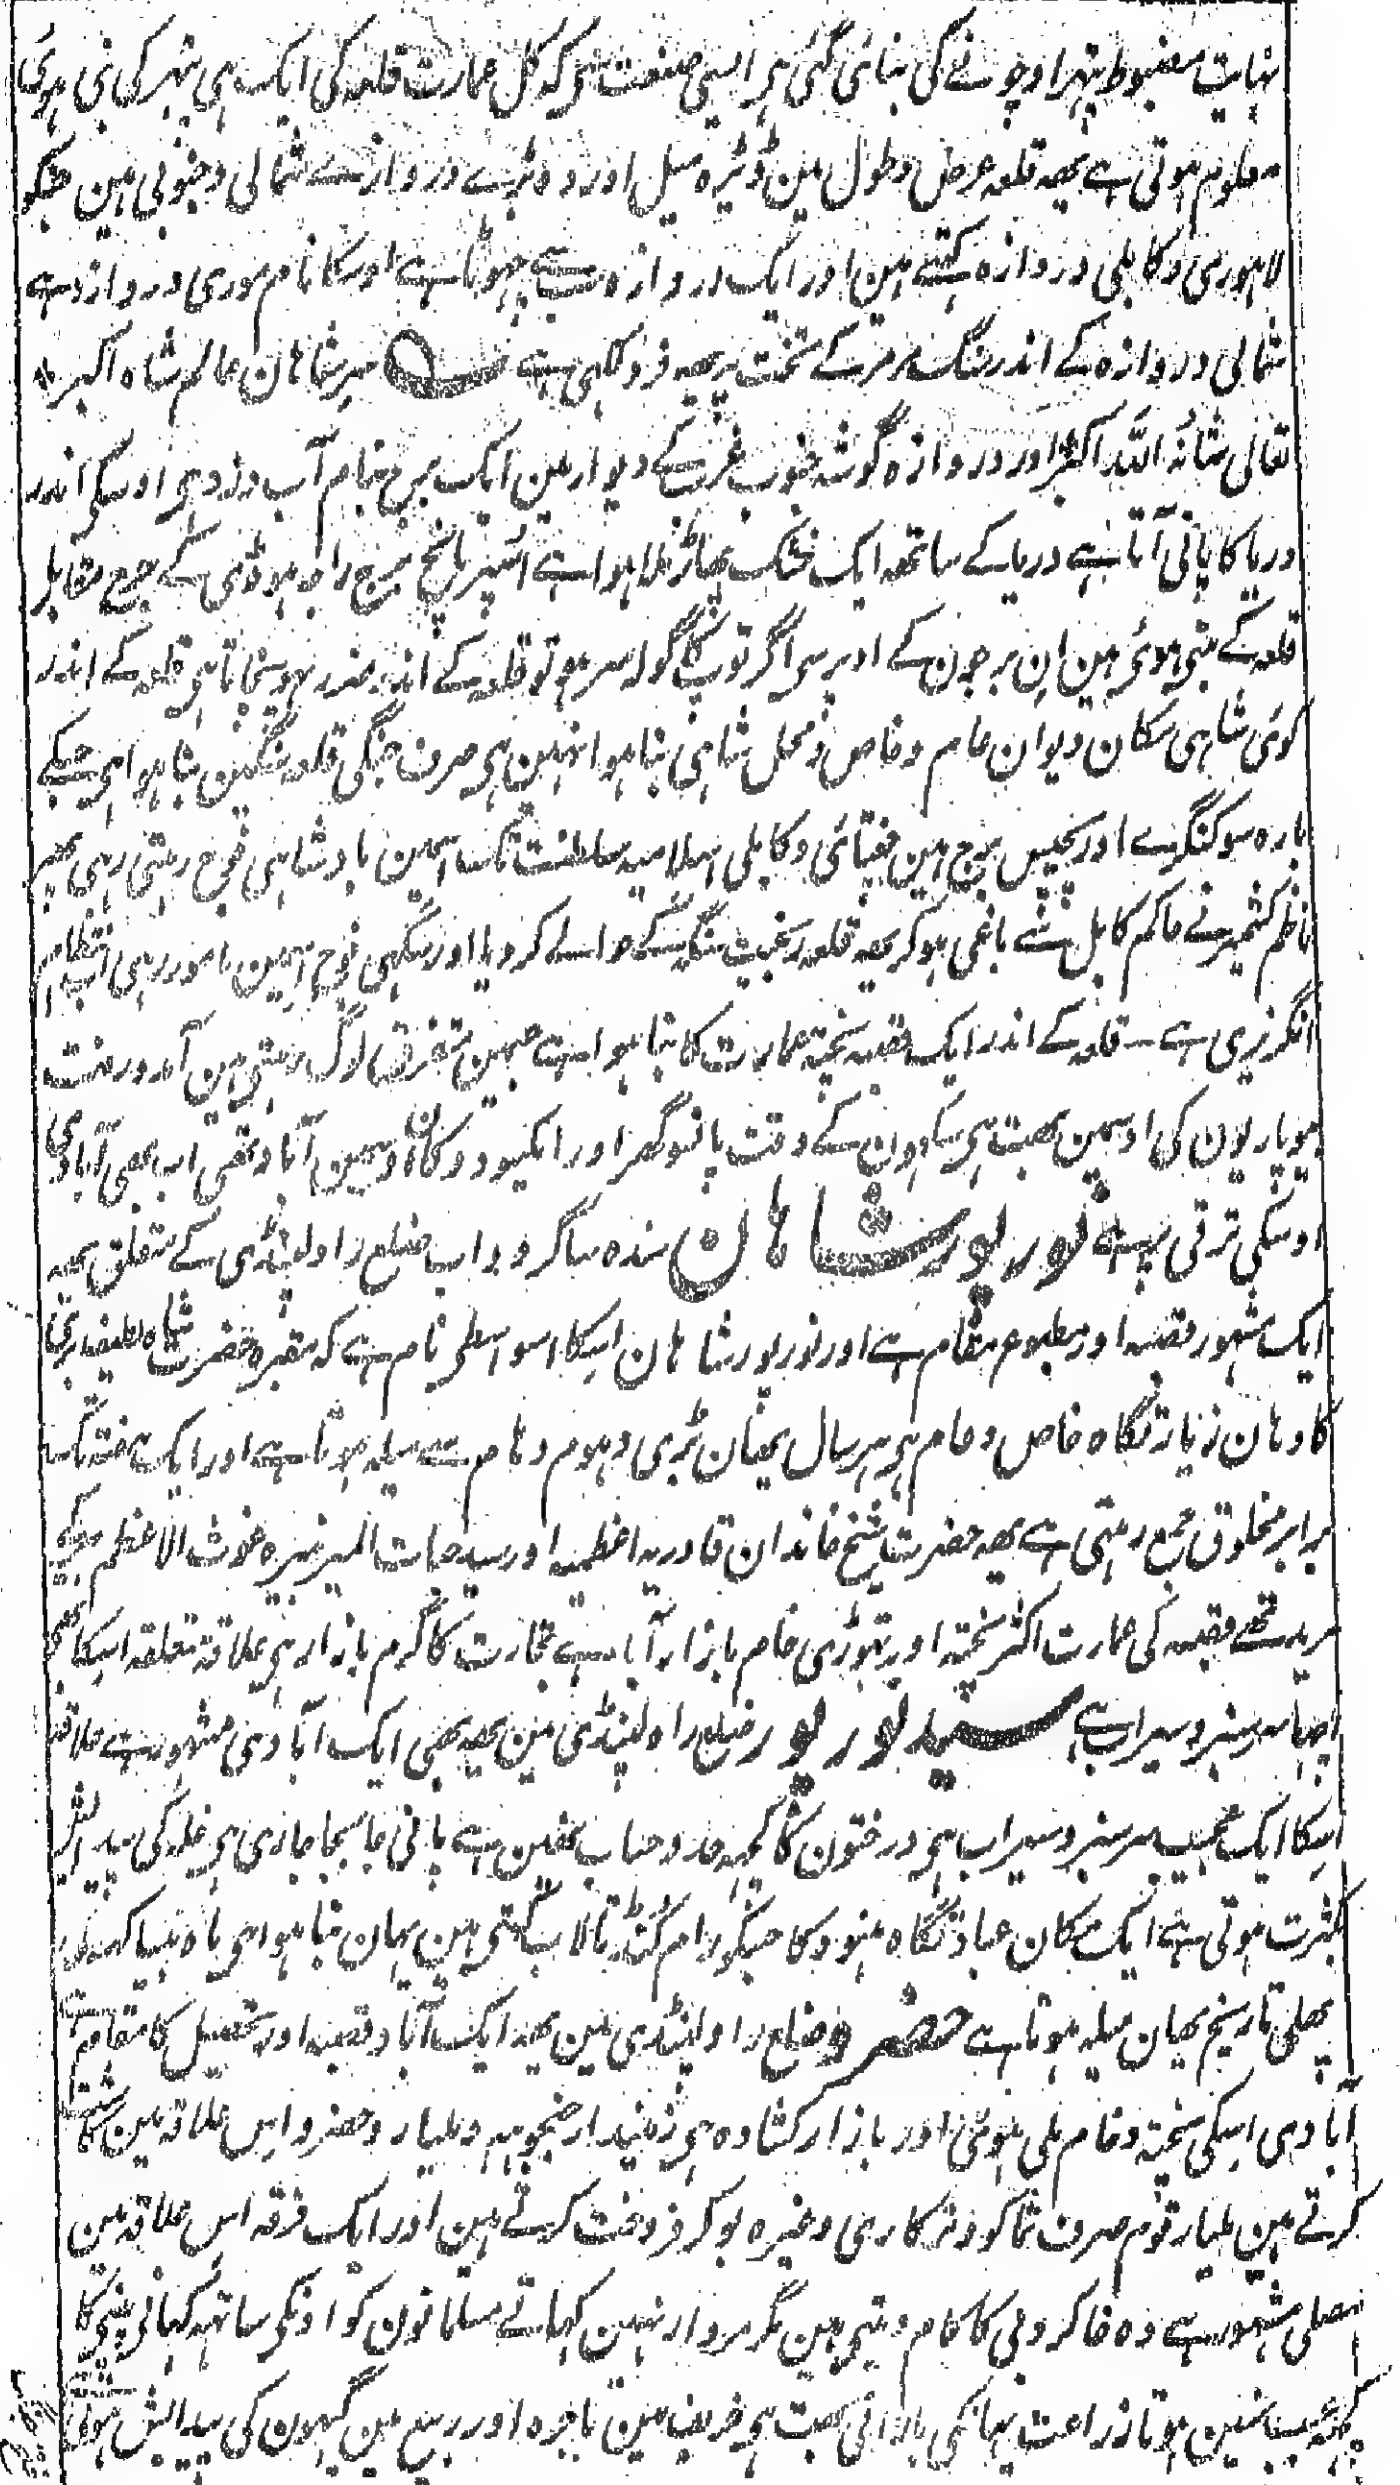 نہایت مضبوط پتھر اور چونے کی بنائی گئی ہی ایسی صنعت سی کہ کل عمارت قلعہ کی ایک ہی پتھر کی بنی ہوئی
معلوم ہوتی ہے یہہ قلعہ عرض وطول مین ڈیڑہ میل اور دو بڑے دروازے شمالی وجنوبی ہین جنکو
لاہوری وکابلی دروازہ کہتے ہین اور ایک دروازہ سب سے چھوٹا ہے اوسکا نام موری دروازہ ہے
شمالی دروازہ کے اندر سنگ مرمر کے تخت پر یہہ فرد لکھی ہے سر شاہان عالم شاہ اکبر
تعالی شانہ اللہ اکبر اور دروازہ گوشہ جنوب غرب کے دیوار مین ایک برج بنام آب دزد ہی اوسکی اندر
دریا کا پانی آتا ہے دریا کے ساتھہ ایک خشک پھاڑ ملا ہوا ہے اسپر پانچ برج راجہ ہوڈی کے برج مقابل
قلعہ کے بنی ہوئی ہین ان برجون کے اوپر سی اگر توپ کا گولہ سر ہو تو قلعہ کے اندر ضرر پہونچاتا ہی قلعہ کے اندر
کوئی شاہی مکان دیوان عام وخاص ومحل شاہی بنا ہوا نہین ہی صرف جنگی قلعہ سنگین بنا ہوا ہی جسکے
بارہ سو کنگرے اور پچیس برج ہین چغتائی وکابلی اسلامیہ سلطنت تک اسمین بادشاہی فوج رہتی رہی پھر
ناظم کشمیر نے حاکم کابل سے باغی ہوکر یہہ قلعہ رنجیت سنگہ کے حوالے کر دیا اور سکہی فوج اسمین مامور رہی اب انتظام
انگریزی ہے ۔ قلعہ کے اندر ایک قصبہ پختہ عمارت کا بنا ہوا ہے جسمین متفرق لوگ رہتی ہین آمد ورفت
بیوپاریون کی اوسمین بہت ہی سکہون کے وقت پانسو گھر اور ایکسو دوکان اوسمین آباد تھی اب بھی آبادی
اوسکی ترقی پر ہے نورپور شاہان سندہ ساگر دوآب ضلع راولپنڈی کے متعلق یہہ
ایک مشہور قصبہ اور مطبوع مقام ہے اور نورپور شاہان اسکا اسواسطی نام ہے کہ مقبرہ حضرت شاہ لطیف بری
کا وہان زیارتگاہ خاص وعام ہی ہر سال یہان بڑی دہوم دہام سے میلہ ہوتا ہے اور ایک ہفتہ تک
برابر مخلوق جمع رہتی ہے یہہ حضرت شیخ خاندان قادریہ اعظمیہ اور سید حیات المیر نبیرہ غوث الاعظم کے
مرید تھے قصبہ کی عمارت اکثر پختہ اور تھوڑی خام بازار آباد ہے تجارت کا گرم بازار ہی علاقہ متعلقہ اسکا بھی
اچھا سرسبز وسیراب ہے سیدپور ضلع راولپنڈی مین یہہ بھی ایک آبادی مشہور ہے علاقہ
اسکا ایک عجیب سرسبز وسیراب ہی درختون کا کچھہ حد وحساب نھین ہے پانی جابجا جاری ہی غلہ کی پیدایش
بکثرت ہوتی ہے ایک مکان عبادتگاہ ہنود کا جسکو رام کنڈ تالاب کہتی ہین یہان بنا ہوا ہی ماہ بیساکہہ کی
پھلی تاریخ یھان میلہ ہوتا ہے حضرو ضلع راولپنڈی مین یہہ ایک آباد قصبہ اور تحصیل کا مقام ہے
آبادی اسکی پختہ وخام ملی ہوئی اور بازار کشادہ ہی زمیندار جنجوہہ وملیار وحضرو اس علاقہ مین
کرتے ہین ملیار قوم صرف تماکو وترکاری وغیرہ بوکر فروخت کرتے ہین اور ایک فرقہ اس علاقہ مین
مصلی مشہور ہے وہ خاکروبی کا کام دیتی ہین مگر مردار نہین کہاتے مسلمانون کو اونکی ساتھہ کہانی پینی کا
کچھہ عیب نہین ہوتا زراعت یہانکی بارانی بہت ہی خریف مین باجرہ اور ربیع مین گیہون کی پیدایش ہوتی